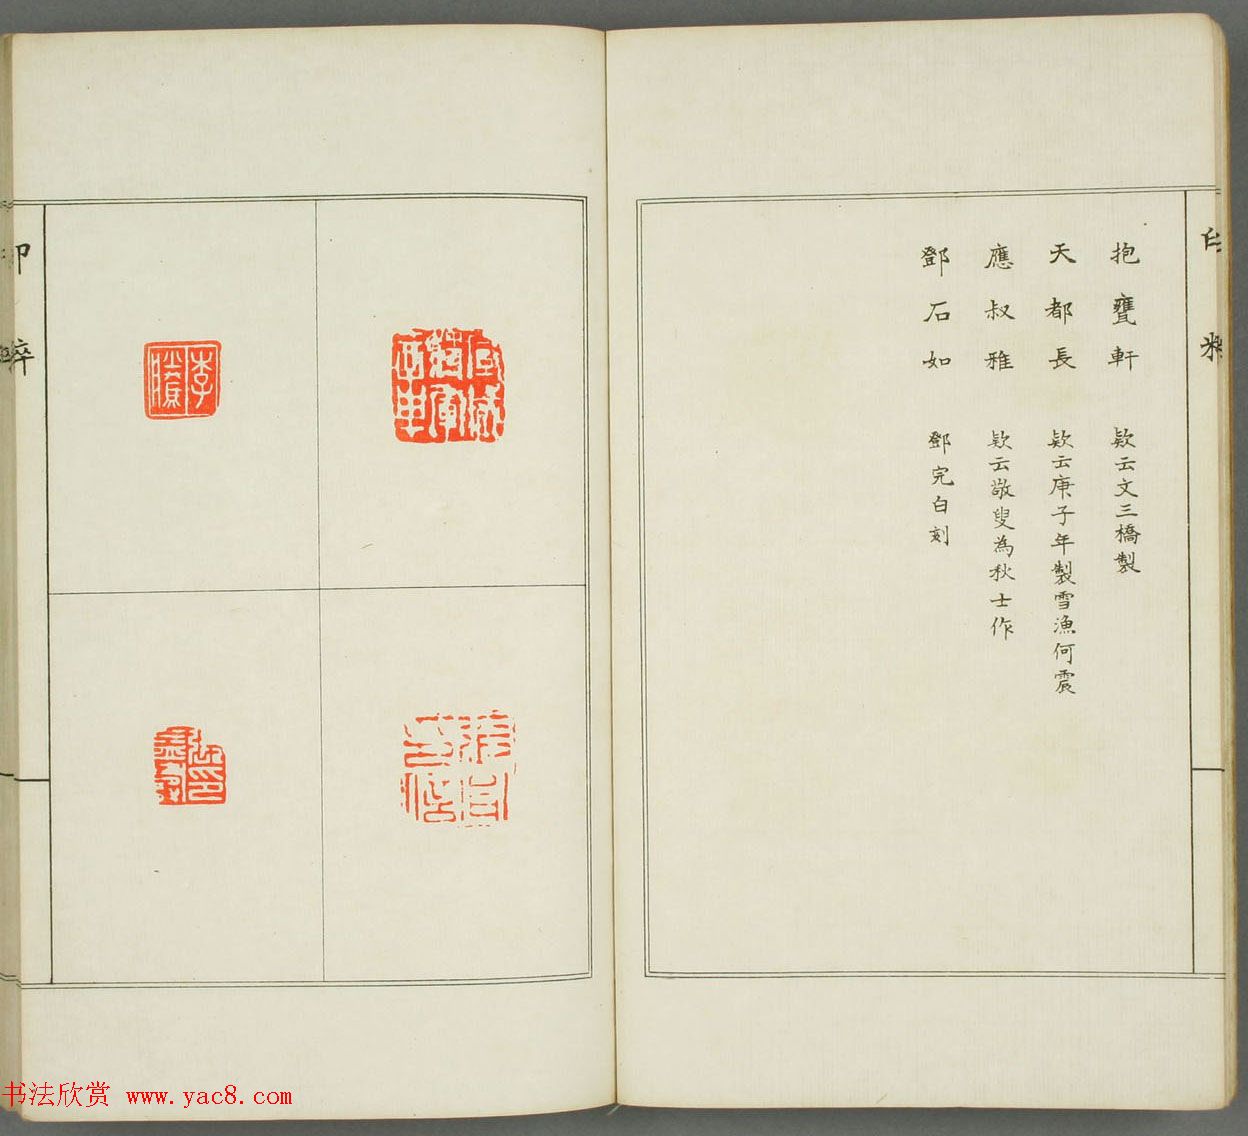 抱甕軒 欵云文三橋製
天都長 欵云庚子年製雪漁何震
應叔雅 欵云敬叟為秋士作
鄧石如 鄧完白刻
將軍
李
印
书法欣赏 www.yac8.com